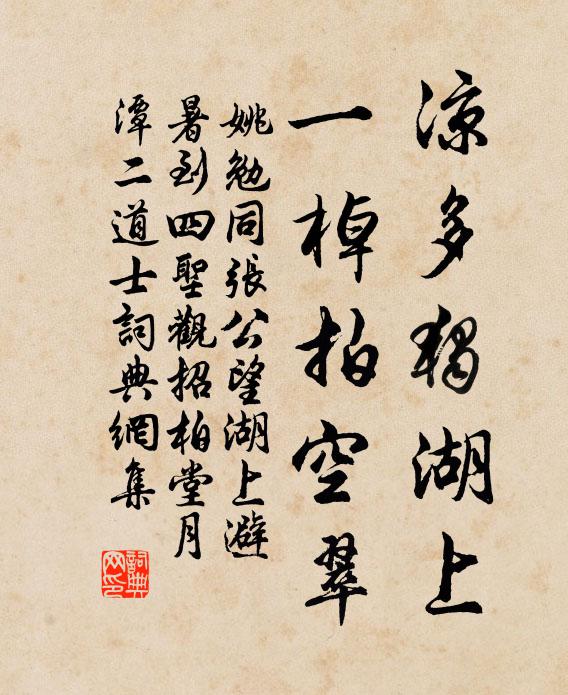 涼多獨湖上
一棹拍空翠
姚勉同張公望湖上避
暑到四聖觀招柏堂月
潭二道士詞典網集
詞典
网印